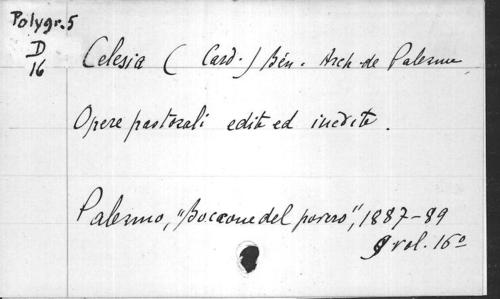 Polygr. 5
D
16
Celesia (Card.) Bén. Arch. de Palerme
Opere pastorali edite ed inedite.
Palermo, "Boccone del povero", 1887-89
9 vol. 16º